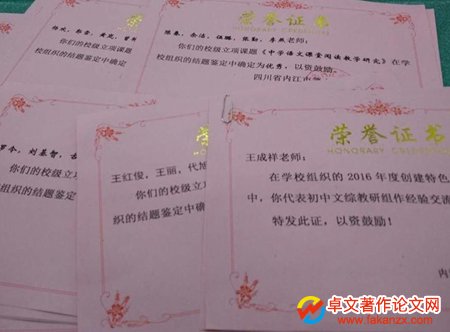 荣誉证书
你们的校级立项课题
校组织的结题鉴定中确定
荣誉证书
HONORARY CREDENTIAL
你们的校级立项课题《中学语文课堂阅读教学研究》在学
校组织的结题鉴定中确定为优秀，以资鼓励。
四川省内江市
刘基智，
你们的校级
织的结题鉴
王红俊，王丽，代旭
你们的校级立项
织的结题鉴定中确
荣誉证书
HONORARY CREDENTIAL
王成祥老师：
在学校组织的 2016 年度创建特色
中，你代表初中文综教研组作经验交流
特发此证，以资鼓励！
内
卓文著作论文网
www.fakanzx.com